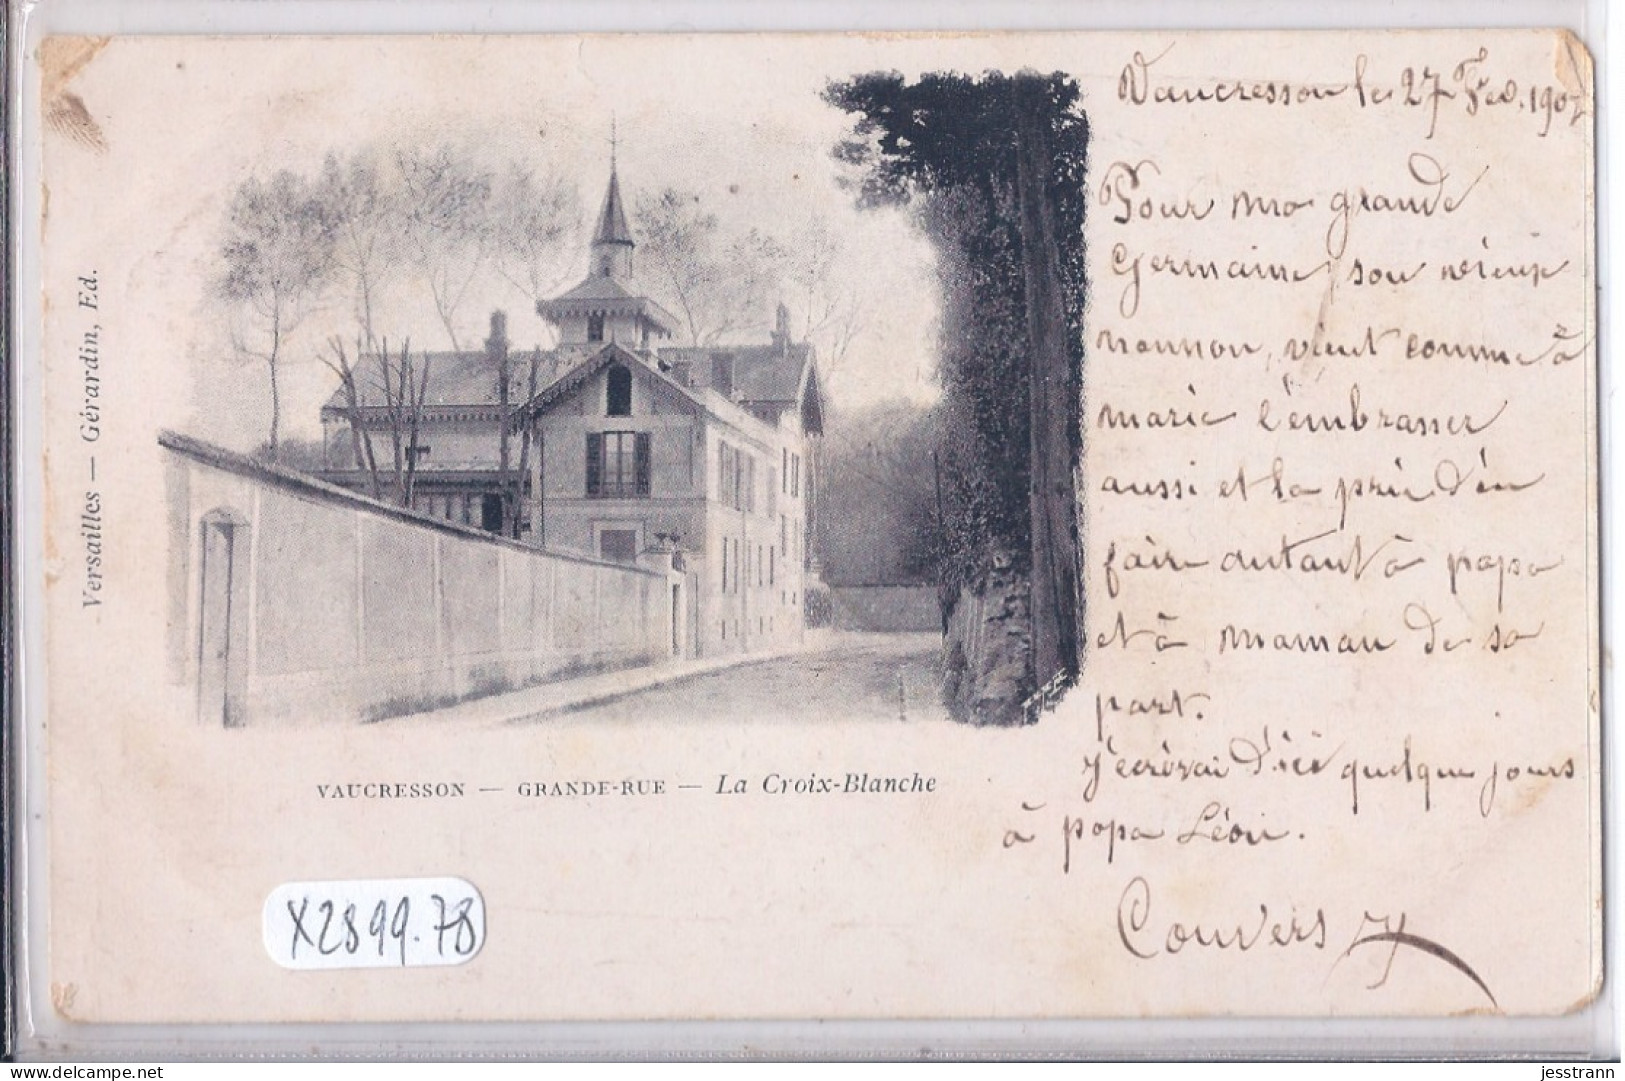 Vaucresson le 27 Fév. 190
Pour ma grande
Germaine, son vieux
nounou, vient comme à
marie l'embrasser
aussi et la prie d'en
faire autant à papa
et à maman de sa
part.
J'écrirai d'ici quelque jours
à papa Léon.
Convers
Versailles — Gérardin, Ed.
VAUCRESSON — GRANDE-RUE — La Croix-Blanche
X2899.78
jesstrann